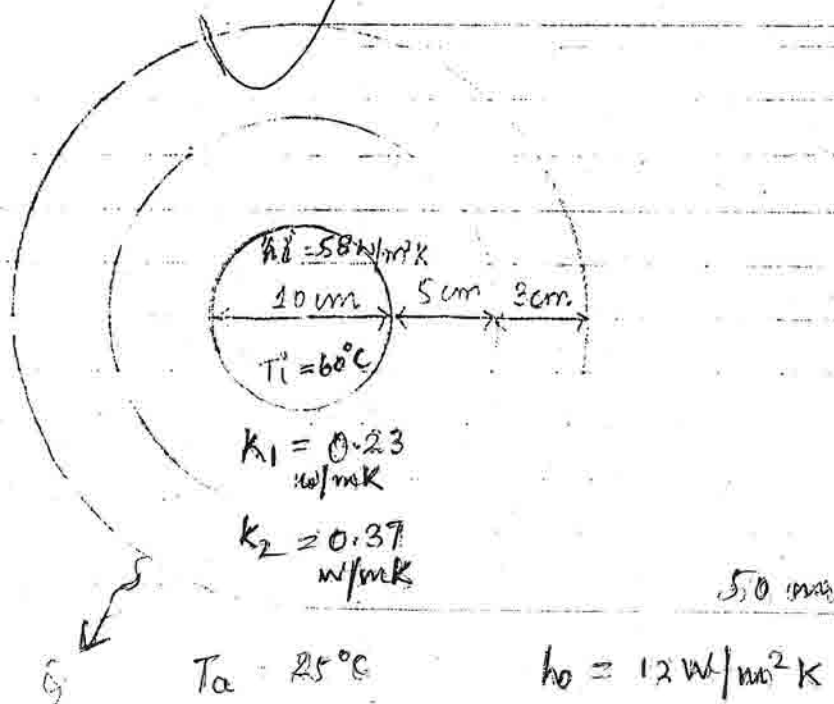 hi = 58 W/m²K
10 cm 5 cm 3cm
Ti = 60°C
K1 = 0.23
w/mK
K2 = 0.37
w/mK
50
Ta 25°C h0 = 12 W/m² K